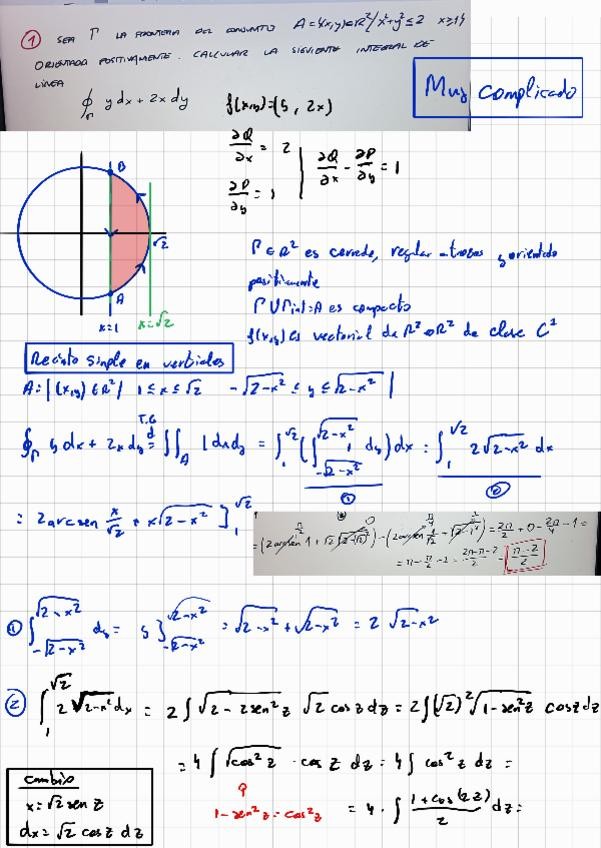 ① SEA Γ LA FRONTERA DEL CONJUNTO A={(x,y)∈R²/x²+y²≤2 x≥1}
ORIENTADA POSITIVAMENTE. CALCULAR LA SIGUIENTE INTEGRAL DE
LINEA
∮_Γ y dx + 2x dy
f(x,y)=(y, 2x)
Muy complicado
∂Q/∂x = 2
∂P/∂y = 1
∂Q/∂x - ∂P/∂y = 1
B
√2
A
x=1
x=√2
Γ∈R² es cerrada, regular a trozos y orientada
positivamente
Γ∪Γint=A es compacto
f(x,y) es vectorial de R² R² de clase C¹
Recinto simple en verticales
A: {(x,y)∈R²/ 1≤x≤√2 -√(2-x²) ≤ y ≤ √(2-x²)}
∮_Γ y dx + 2x dy =(T.G) ∬_A 1 dx dy = ∫_1^√2 (∫_{-√(2-x²)}^{√(2-x²)} 1 dy) dx = ∫_1^√2 2√(2-x²) dx
① ②
= 2 arcsen x/√2 + x√(2-x²) ]_1^√2
= (2 arcsen 1 + √2 √(2-(√2)²)) - (2 arcsen 1/√2 - √(2-1²)) = 2π/2 + 0 - 2π/4 - 1 =
= π - π/2 - 1 = (2π-π-2)/2 = (π-2)/2
① ∫_{-√(2-x²)}^{√(2-x²)} dy = y ]_{-√(2-x²)}^{√(2-x²)} = √(2-x²) + √(2-x²) = 2√(2-x²)
② ∫_1^√2 2√(2-x²) dx = 2∫√(2-2sen²z) √2 cosz dz = 2∫(√2)² √(1-sen²z) cosz dz
= 4∫√(cos²z) · cos z dz = 4∫cos²z dz =
cambio
x=√2 sen z
dx=√2 cosz dz
1-sen²z=cos²z
= 4·∫ (1+cos(2z))/2 dz =